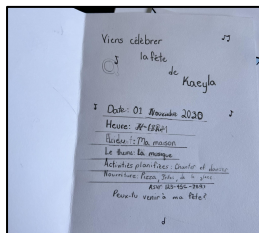 Viens célébrer
la fête
de
Kaeyla
Date: 01 Novembre 2030
Heure:
Ma maison
Le thème: La musique
Activités planifiées: Chanter et danser
Nourriture: Pizza, de la glace
Peux-tu venir à ma fête?